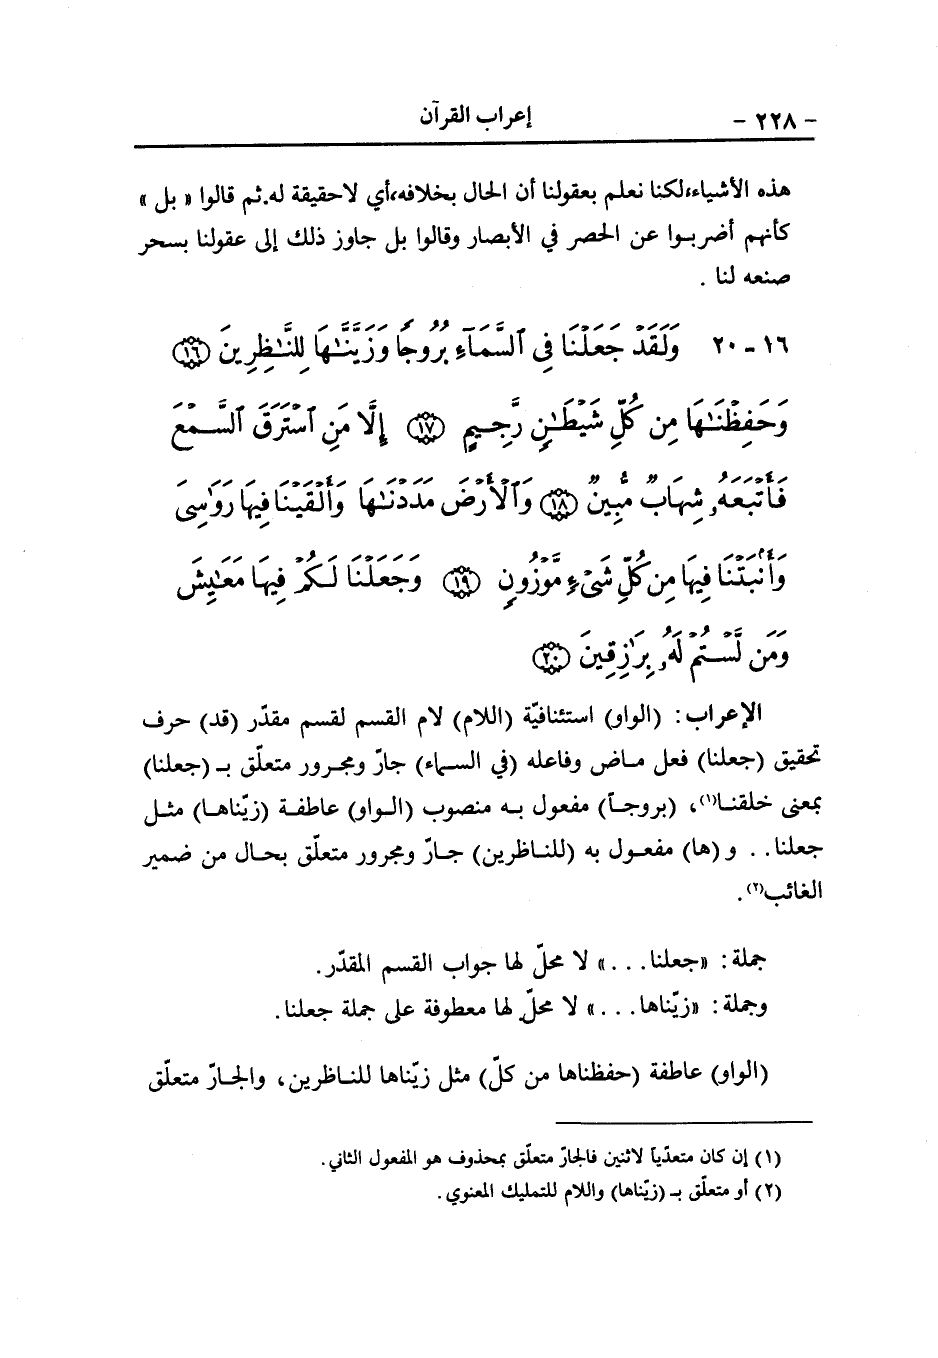 - ٢٢٨ - إعراب القرآن
هذه الأشياء،لكنا نعلم بعقولنا أن الحال بخلافه،أي لاحقيقة له.ثم قالوا « بل »
كأنهم أضربوا عن الحصر في الأبصار وقالوا بل جاوز ذلك إلى عقولنا بسحر
صنعه لنا .
١٦ - ٢٠ وَلَقَدْ جَعَلْنَا فِى ٱلسَّمَآءِ بُرُوجًا وَزَيَّنَّٰهَا لِلنَّٰظِرِينَ ﴿١٦﴾
وَحَفِظْنَٰهَا مِن كُلِّ شَيْطَٰنٍ رَّجِيمٍ ﴿١٧﴾ إِلَّا مَنِ ٱسْتَرَقَ ٱلسَّمْعَ
فَأَتْبَعَهُۥ شِهَابٌ مُّبِينٌ ﴿١٨﴾ وَٱلْأَرْضَ مَدَدْنَٰهَا وَأَلْقَيْنَا فِيهَا رَوَٰسِىَ
وَأَنۢبَتْنَا فِيهَا مِن كُلِّ شَىْءٍ مَّوْزُونٍ ﴿١٩﴾ وَجَعَلْنَا لَكُمْ فِيهَا مَعَٰيِشَ
وَمَن لَّسْتُمْ لَهُۥ بِرَٰزِقِينَ ﴿٢٠﴾
الإعراب : (الواو) استئنافيّة (اللام) لام القسم لقسم مقدّر (قد) حرف
تحقيق (جعلنا) فعل ماض وفاعله (في السماء) جارّ ومجرور متعلّق بـ (جعلنا)
بمعنى خلقنا(١)، (بروجاً) مفعول به منصوب (الواو) عاطفة (زيّناها) مثل
جعلنا . . و (ها) مفعول به (للناظرين) جارّ ومجرور متعلّق بحال من ضمير
الغائب(٢) .
جملة : «جعلنا . . . » لا محلّ لها جواب القسم المقدّر .
وجملة : «زيّناها . . . » لا محلّ لها معطوفة على جملة جعلنا .
(الواو) عاطفة (حفظناها من كلّ) مثل زيّناها للناظرين ، والجارّ متعلّق
(١) إن كان متعدّياً لاثنين فالجارّ متعلّق بمحذوف هو المفعول الثاني .
(٢) أو متعلّق بـ (زيّناها) واللام للتمليك المعنوي .